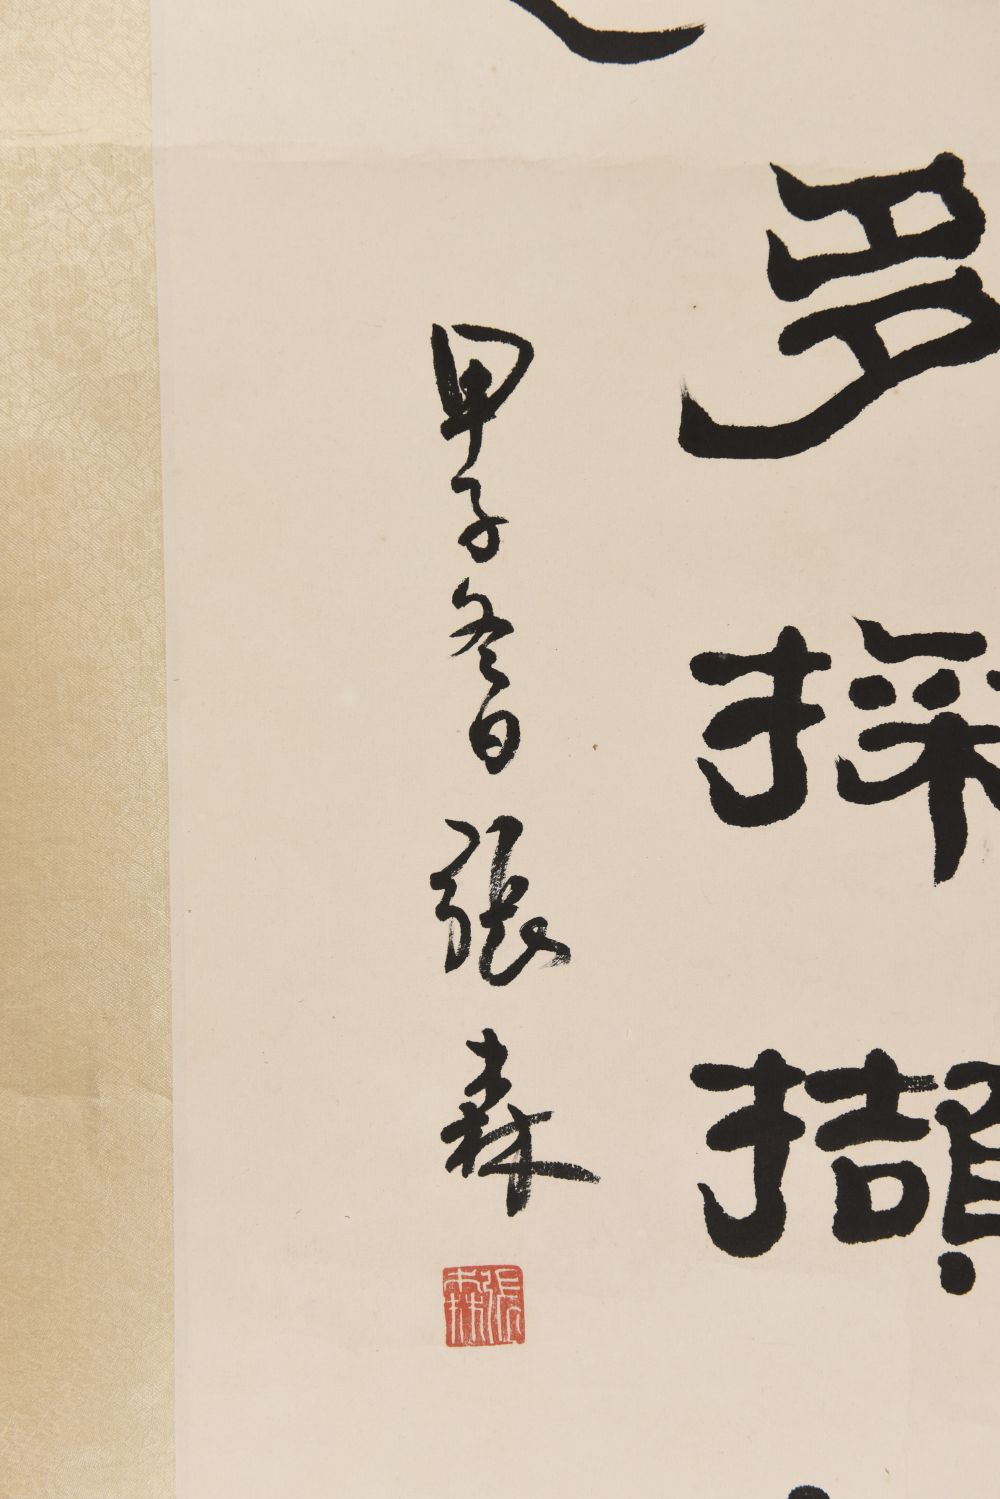 多採擷
甲子冬日張森
張森